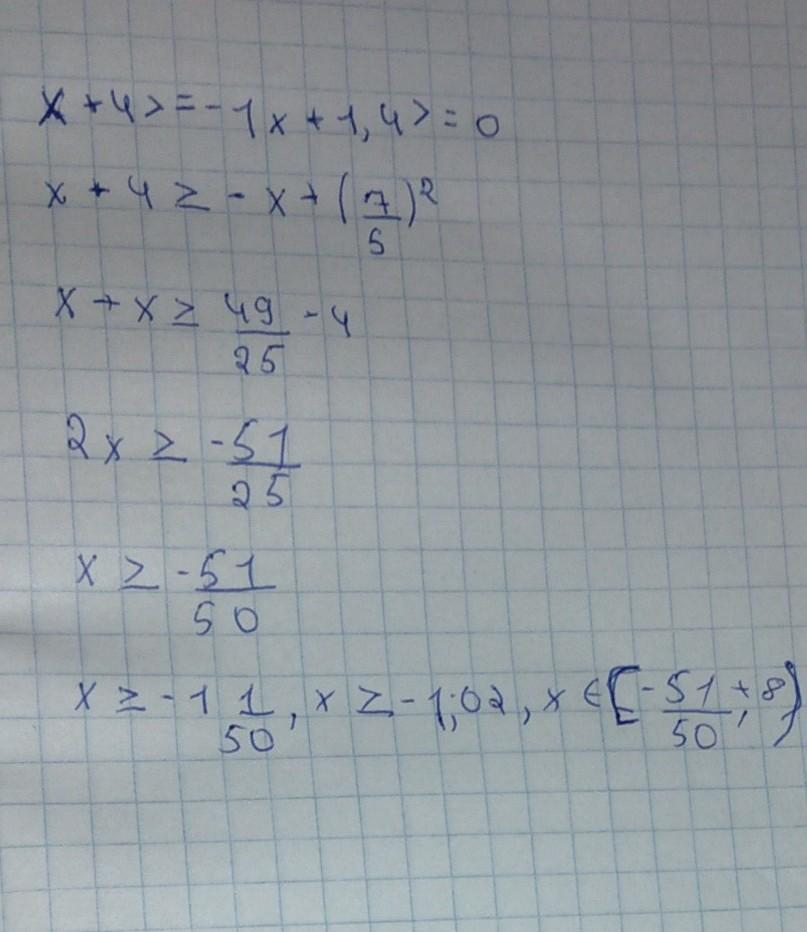 x + 4 >= -1x + 1,4 >= 0
x + 4 ≥ -x + (7/5)²
x + x ≥ 49/25 - 4
2x ≥ -51/25
x ≥ -51/50
x ≥ -1 1/50, x ≥ -1,02, x ∈ [-51/50; +8)